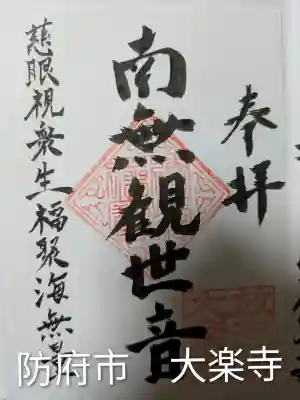 奉拝
南無観世音
慈眼視衆生福聚海無量
防府市 大楽寺